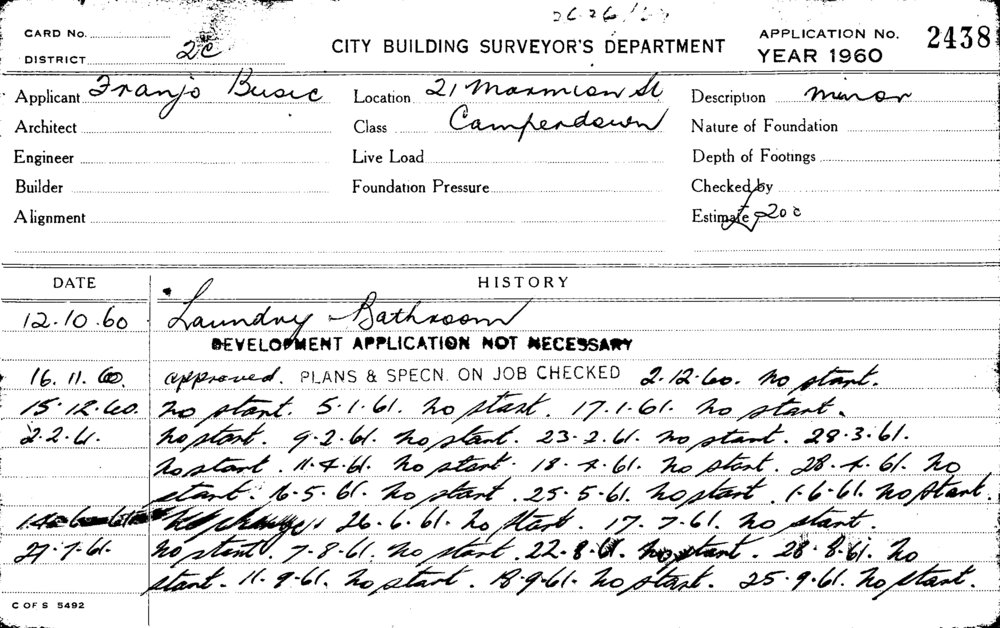 CARD No.
DISTRICT 2c
CITY BUILDING SURVEYOR'S DEPARTMENT
APPLICATION No. 2438
YEAR 1960
Applicant Franjo Busic
Location 21 Marmion St
Description minor
Architect
Class Camperdown
Nature of Foundation
Engineer
Live Load
Depth of Footings
Builder
Foundation Pressure
Checked by
Alignment
Estimate £200
DATE HISTORY
12.10.60 Laundry - Bathroom
DEVELOPMENT APPLICATION NOT NECESSARY
16.11.60. approved. PLANS & SPECN. ON JOB CHECKED 2.12.60. No start.
15.12.60. No start. 5.1.61. No start. 17.1.61. No start.
2.2.61. No start. 9.2.61. No start. 23.2.61. No start. 28.3.61.
No start. 11.4.61. No start. 18.4.61. No start. 28.4.61. No
start. 16.5.61. No start. 25.5.61. No start. 1.6.61. No start.
26.6.61. No start. 17.7.61. No start.
27.7.61. No start. 7.8.61. No start. 22.8.61. No start. 28.8.61. No
start. 11.9.61. No start. 18.9.61. No start. 25.9.61. No start.
C OF S 5492